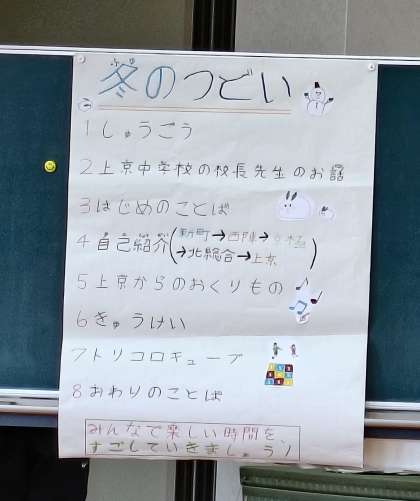 ふゆ
冬のつどい
1 しゅうごう
2 上京中学校の校長先生のお話
3 はじめのことば
4 自己紹介(新町→西陣→京極
→北総合→上京)
5 上京からのおくりもの
6 きゅうけい
7 トリコロキューブ
8 おわりのことば
みんなで楽しい時間を、
すごしていきましょう!